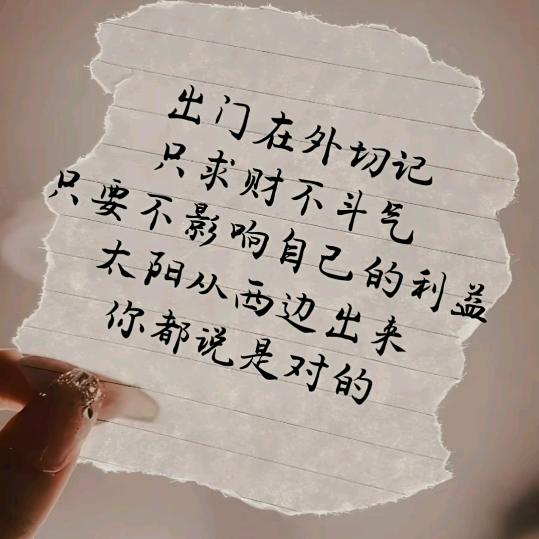 出门在外切记
只求财不斗气
只要不影响自己的利益
太阳从西边出来
你都说是对的